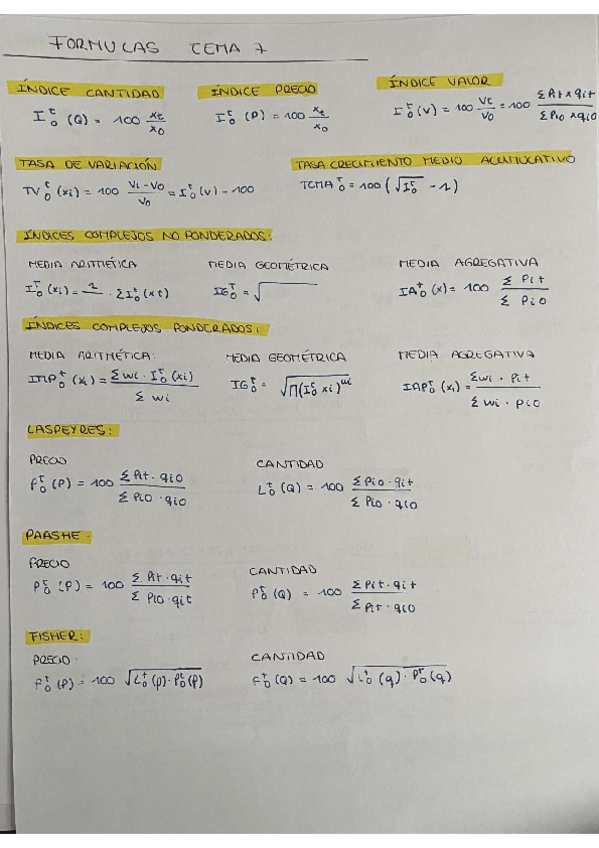 FORMULAS TEMA 7
ÍNDICE CANTIDAD
I₀ᵗ (Q) = 100 xt/x₀
ÍNDICE PRECIO
I₀ᵗ (P) = 100 xt/x₀
ÍNDICE VALOR
I₀ᵗ (V) = 100 Vt/V₀ = 100 Σ Pit x qit / Σ Pi0 x qi0
TASA DE VARIACIÓN
TV₀ᵗ (xi) = 100 Vi - V₀ / V₀ = I₀ᵗ (v) - 100
TASA CRECIMIENTO MEDIO ACUMULATIVO
TCMA₀ᵗ = 100 (√I₀ᵗ - 1)
ÍNDICES COMPLEJOS NO PONDERADOS:
MEDIA ARITMÉTICA
I₀ᵗ (xi) = 1/ · Σ I₀ᵗ (xt)
MEDIA GEOMÉTRICA
IG₀ᵗ = √
MEDIA AGREGATIVA
IA₀ᵗ (x) = 100 Σ Pit / Σ Pi0
ÍNDICES COMPLEJOS PONDERADOS:
MEDIA ARITMÉTICA:
IMP₀ᵗ (xi) = Σ wi · I₀ᵗ (xi) / Σ wi
MEDIA GEOMÉTRICA
IG₀ᵗ = √Π(I₀ᵗ xi)ʷⁱ
MEDIA AGREGATIVA
IAP₀ᵗ (xi) = Σ wi · Pit / Σ wi · Pi0
LASPEYRES:
PRECIO
L₀ᵗ (P) = 100 Σ Pit · qi0 / Σ Pi0 · qi0
CANTIDAD
L₀ᵗ (Q) = 100 Σ Pi0 · qit / Σ Pi0 · qi0
PAASHE:
PRECIO
P₀ᵗ (P) = 100 Σ Pit · qit / Σ Pi0 · qit
CANTIDAD
P₀ᵗ (Q) = 100 Σ Pit · qit / Σ Pit · qi0
FISHER:
PRECIO:
F₀ᵗ (P) = 100 √L₀ᵗ (p) · P₀ᵗ (p)
CANTIDAD
F₀ᵗ (Q) = 100 √L₀ᵗ (q) · P₀ᵗ (q)